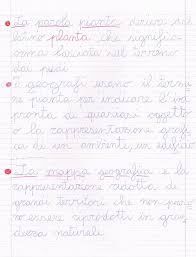 La parola pianta deriva dal
latino planta che significa
orma lasciata sul terreno
dai piedi
i geografi usano il termi
ne pianta per indicare l'im
pronta di qualsiasi oggetto
o la rappresentazione grafi
ca di un ambiente, un edificio
La mappa geografica è la
rappresentazione ridotta di
grandi territori che non pos
no essere riprodotti in gran
dezza naturale